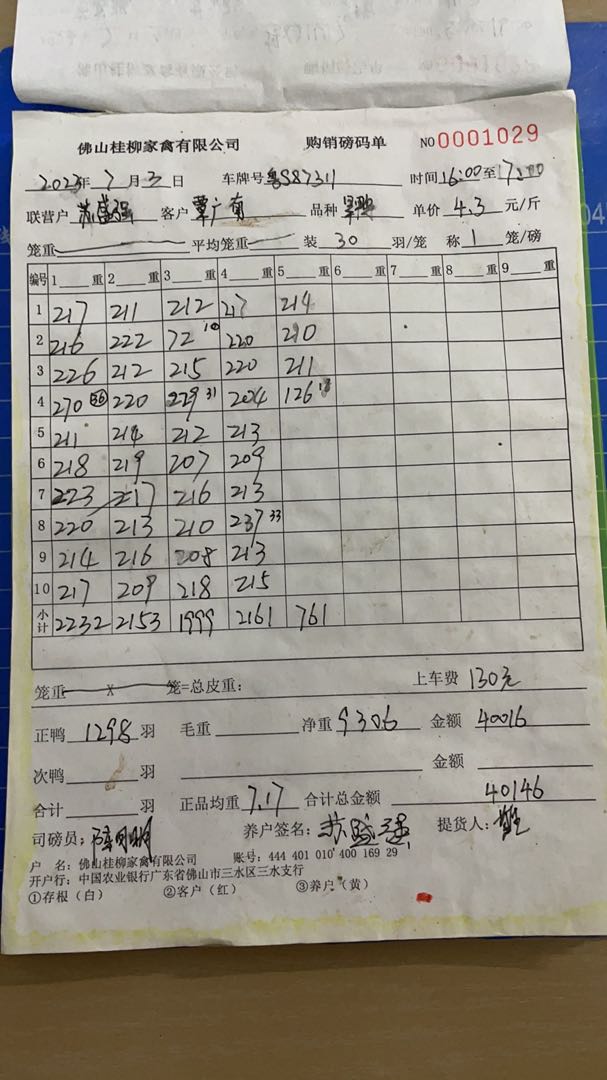 佛山桂柳家禽有限公司 购销磅码单 NO 0001029
2023年 7月 3日 车牌号 粤S87311 时间 16:00 至 17:00
联营户 苏盛强 客户 覃广有 品种 单价 4.3 元/斤
笼重 平均笼重 装 30 羽/笼 称 1 笼/磅
编号 1 重 2 重 3 重 4 重 5 重 6 重 7 重 8 重 9 重
1 217 211 212 217 214
2 216 222 72 10 220 210
3 226 212 215 220 211
4 270 36 220 229 31 204 126 18
5 211 214 212 213
6 218 219 207 209
7 223 217 216 213
8 220 213 210 237 33
9 214 216 208 213
10 217 209 218 215
小计 2232 2153 1999 2161 761
笼重 X 笼=总皮重: 上车费 130元
正鸭 1298 羽 毛重 净重 9306 金额 40016
次鸭 羽 金额
合计 羽 正品均重 7.17 合计总金额 40146
司磅员: 养户签名: 苏盛强 提货人:
户 名: 佛山桂柳家禽有限公司 账号: 444 401 010 400 169 29
开户行: 中国农业银行广东省佛山市三水区三水支行
①存根(白) ②客户(红) ③养户(黄)